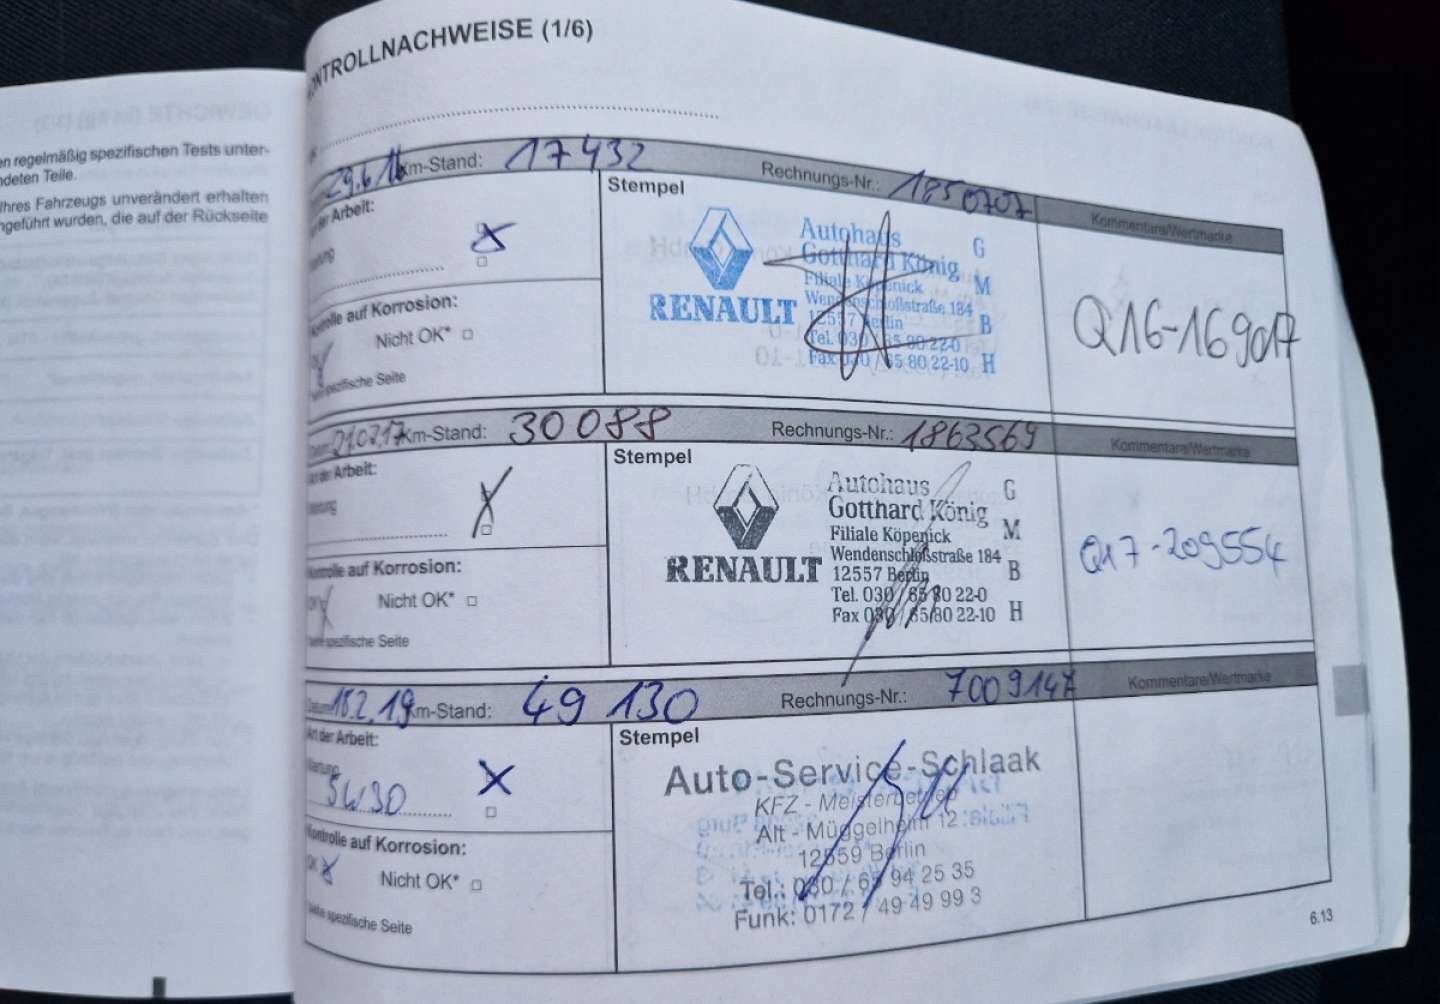 en regelmäßig spezifischen Tests unter-
ndeten Teile.
Ihres Fahrzeugs unverändert erhalten
ngeführt wurden, die auf der Rückseite
ONTROLLNACHWEISE (1/6)
29.6.16 Km-Stand: 17432 Rechnungs-Nr.: 1850707 Kommentare/Wertmarke
der Arbeit:
Stempel
RENAULT
Autohaus G
Gotthard König
Filiale Köpenick M
Wendenschloßstraße 184
12557 Berlin B
Tel. 030 / 65 80 22-0
Fax 030 / 65 80 22-10 H
Q16-169017
Kontrolle auf Korrosion:
Nicht OK*
spezifische Seite
210217 Km-Stand: 30088 Rechnungs-Nr.: 1863569 Kommentare/Wertmarke
Art der Arbeit:
Wartung
Stempel
RENAULT
Autohaus G
Gotthard König
Filiale Köpenick M
Wendenschloßstraße 184
12557 Berlin B
Tel. 030 / 65 80 22-0
Fax 030 / 65/80 22-10 H
Q17-209554
Kontrolle auf Korrosion:
OK Nicht OK*
Siehe spezifische Seite
Datum 18.2.19 Km-Stand: 49 130 Rechnungs-Nr.: 7009147 Kommentare/Wertmarke
Art der Arbeit:
Wartung
5W30
Stempel
Auto-Service-Schlaak
KFZ - Meisterbetrieb
Alt - Müggelheim 12
12559 Berlin
Tel.: 030 / 65 94 25 35
Funk: 0172 / 49 49 99 3
Kontrolle auf Korrosion:
OK Nicht OK*
Siehe spezifische Seite
6.13